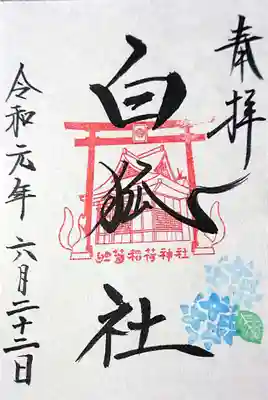 奉拝
白狐社
笠䅣稲荷神社
令和元年 六月二十二日